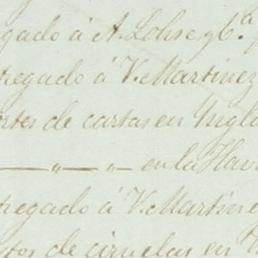 egado á A. Lohse y C.ª
tregado á V. Martinez
ortes de cartas en Ingla
— " — " — en la Hav
tregado á V. Martine
tos de ciruelas en